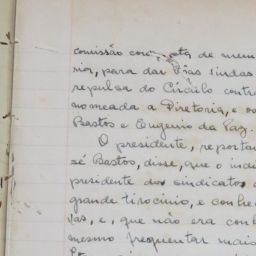 comissão com
de mem
rior, para dar bôas vindas
repulsa do Círculo contra
nomeada a Diretoria, e
Bastos e Eugenio da Paz.
O presidente, reportan
sé Bastos, disse, que o indi
presidente do sindicatos
grande tirocinio, e conhe
e, que não era con
mesmo frequentar mais